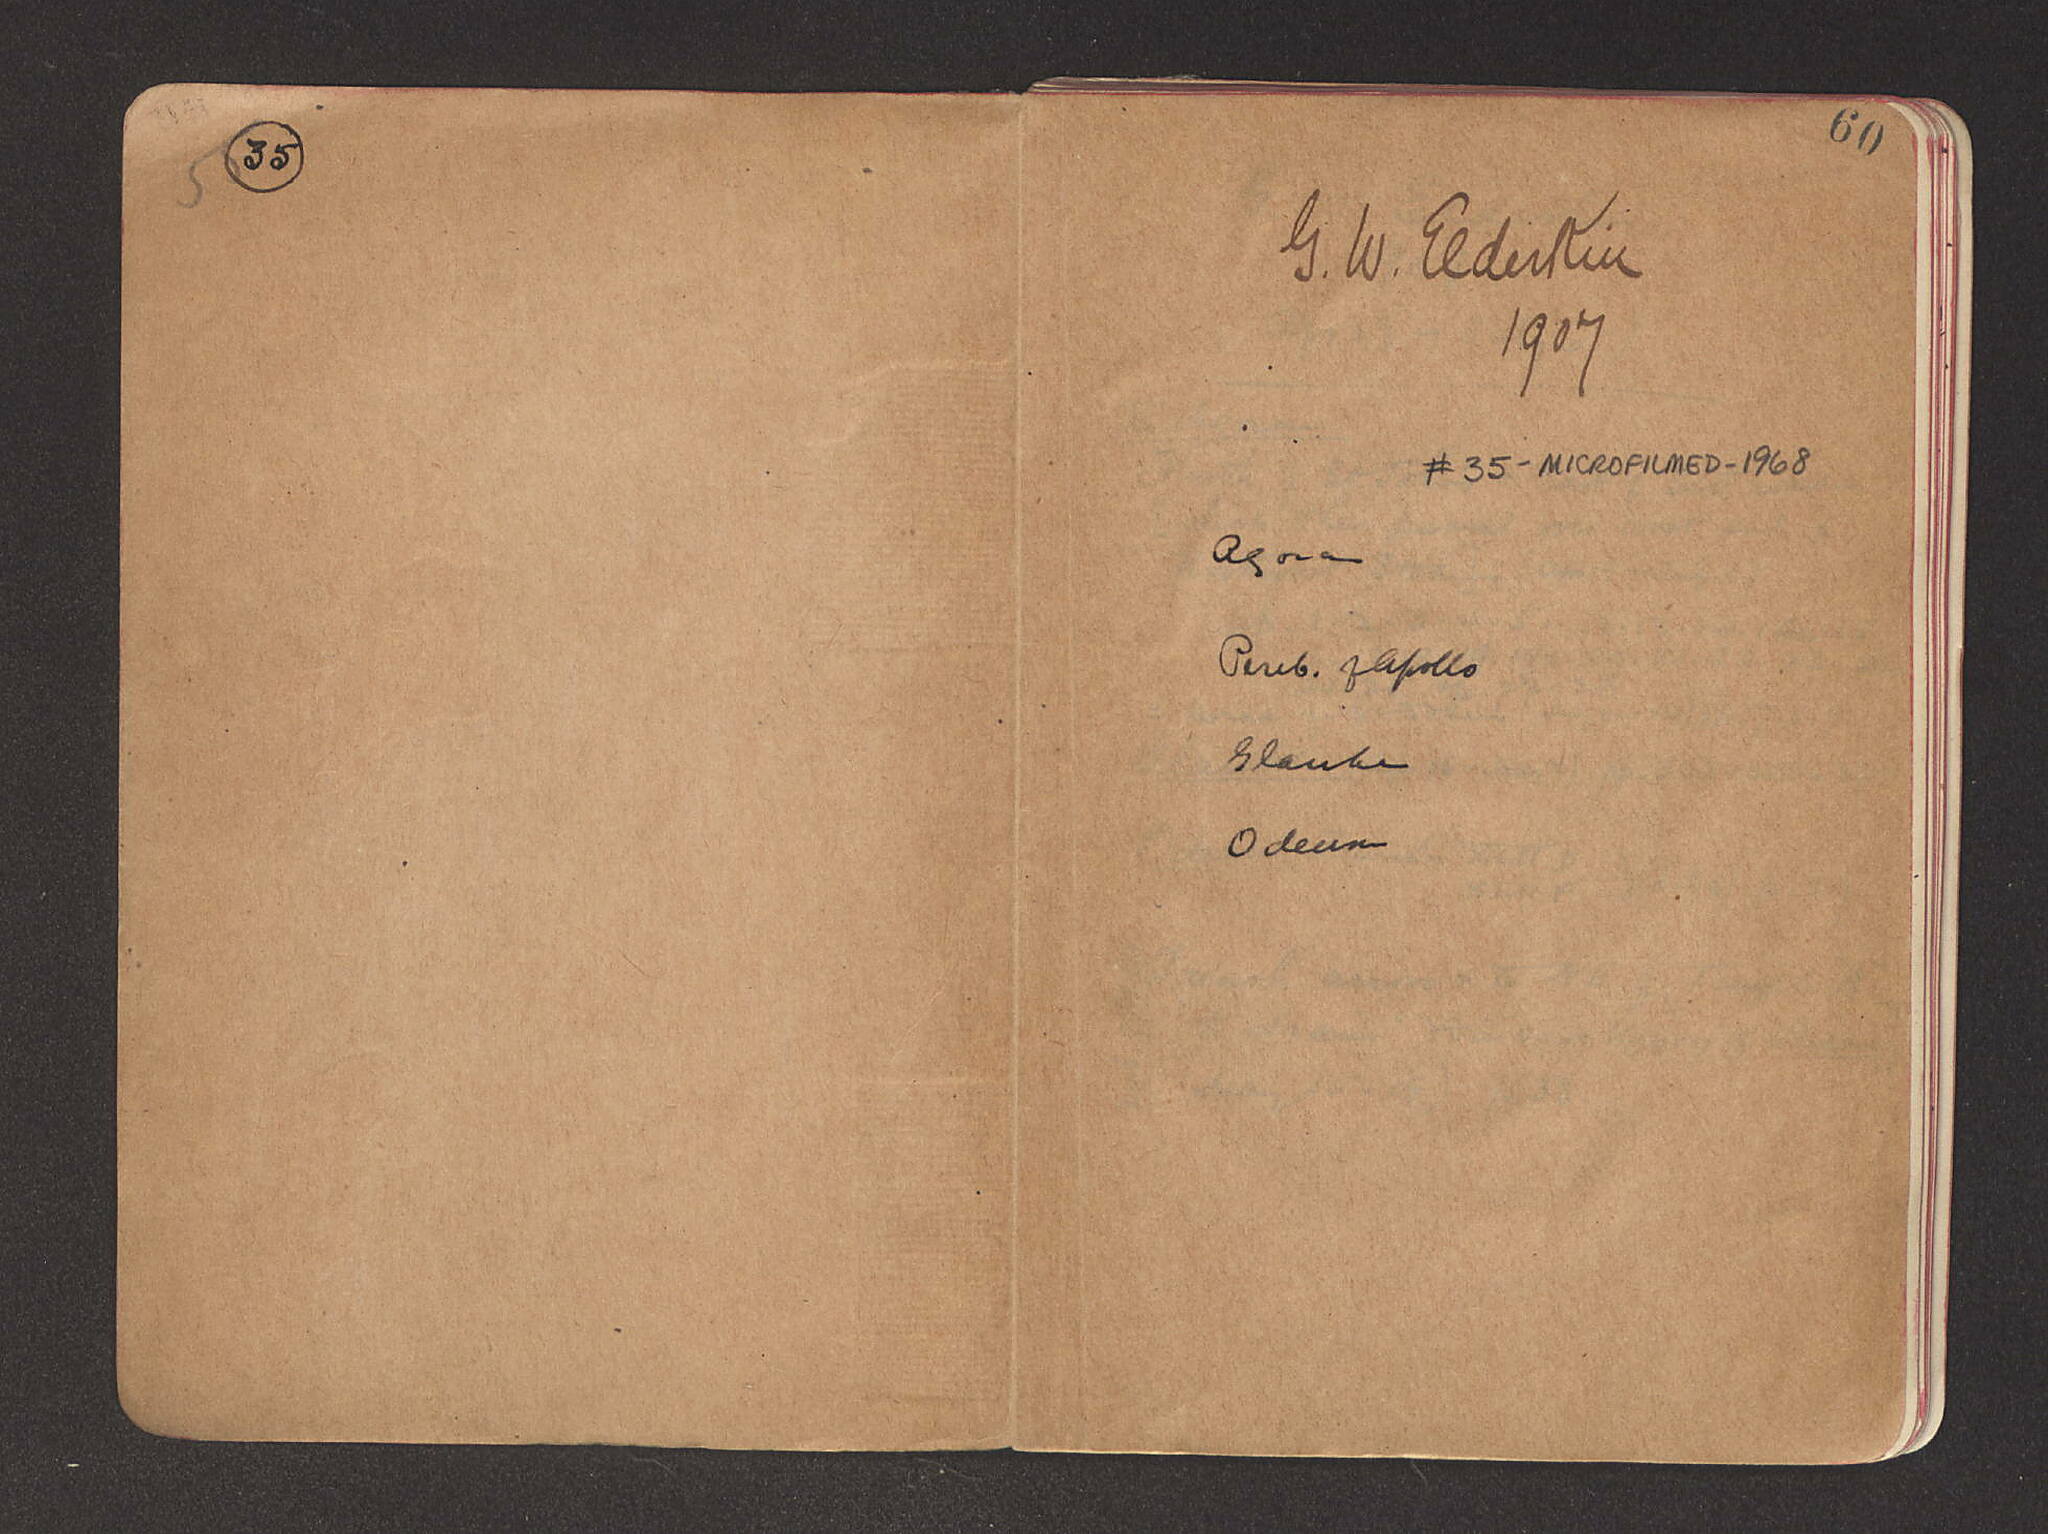 35
5
60
G. W. Elderkin
1907
# 35 - MICROFILMED - 1968
Agora
Perib. of Apollo
Glauke
Odeum